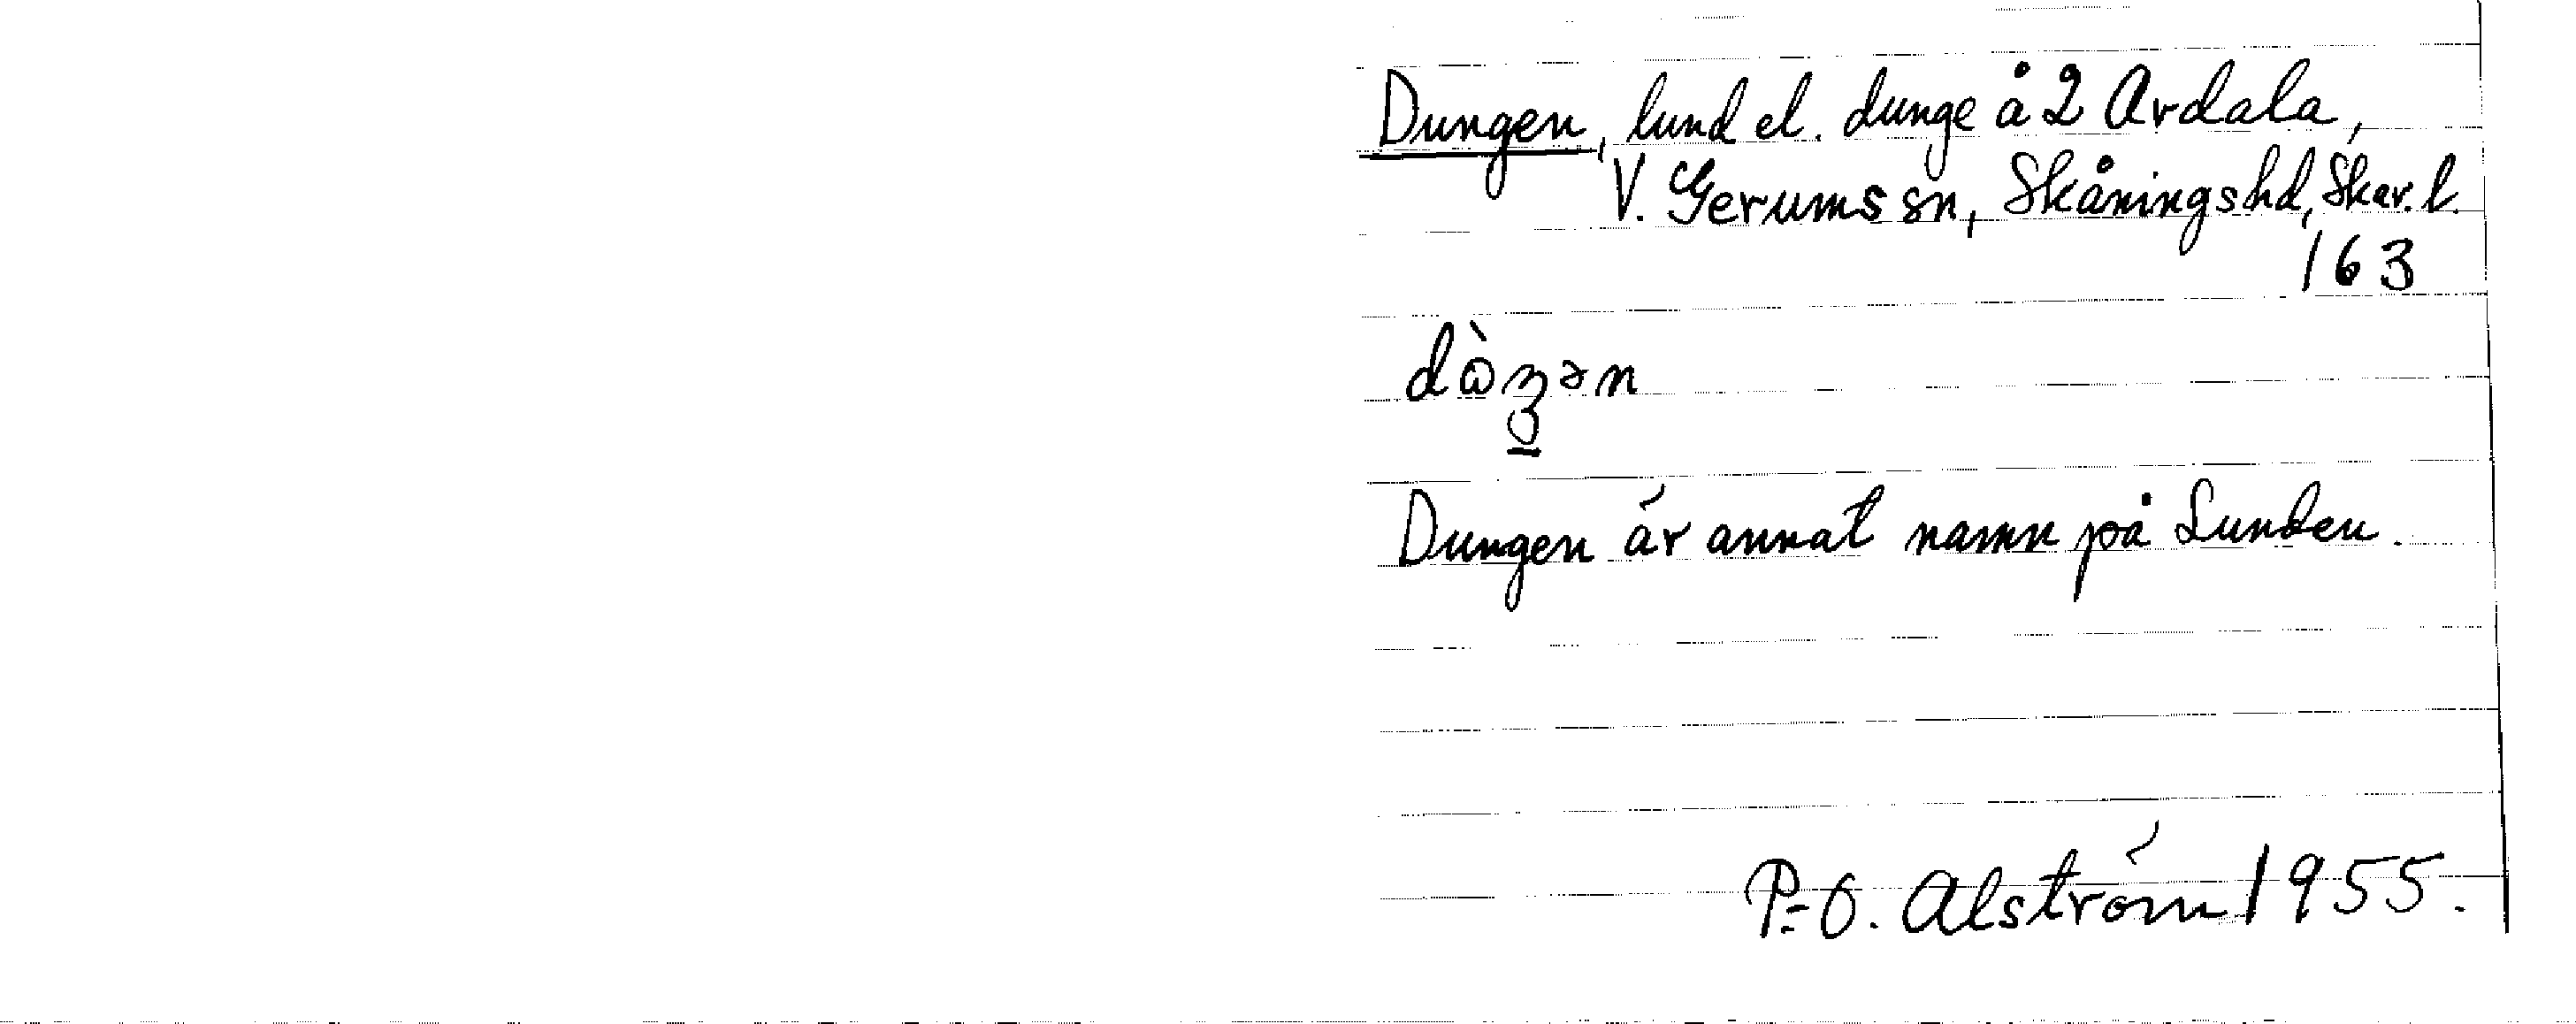 Dungen, lund el. dunge å 2 Ardala,
V. Gerums sn, Skånings hd, Skar. l.
163
dòʒən
Dungen är annat namn på Lunden.
P.-O. Alström 1955.